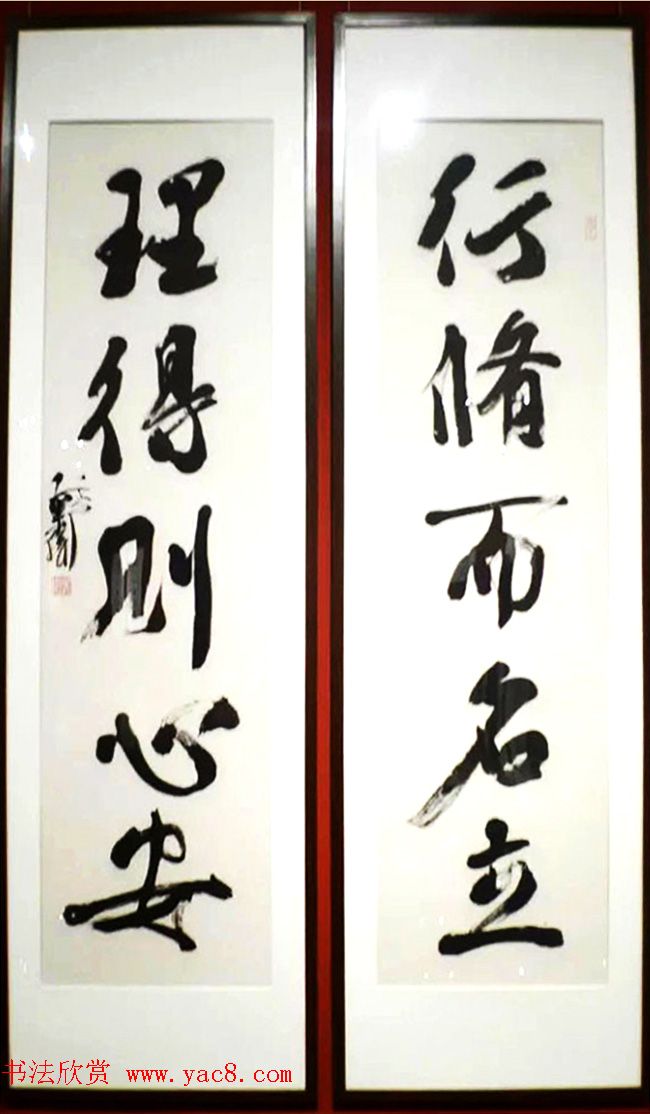 行脩而名立
理得則心安
书法欣赏 www.yac8.com